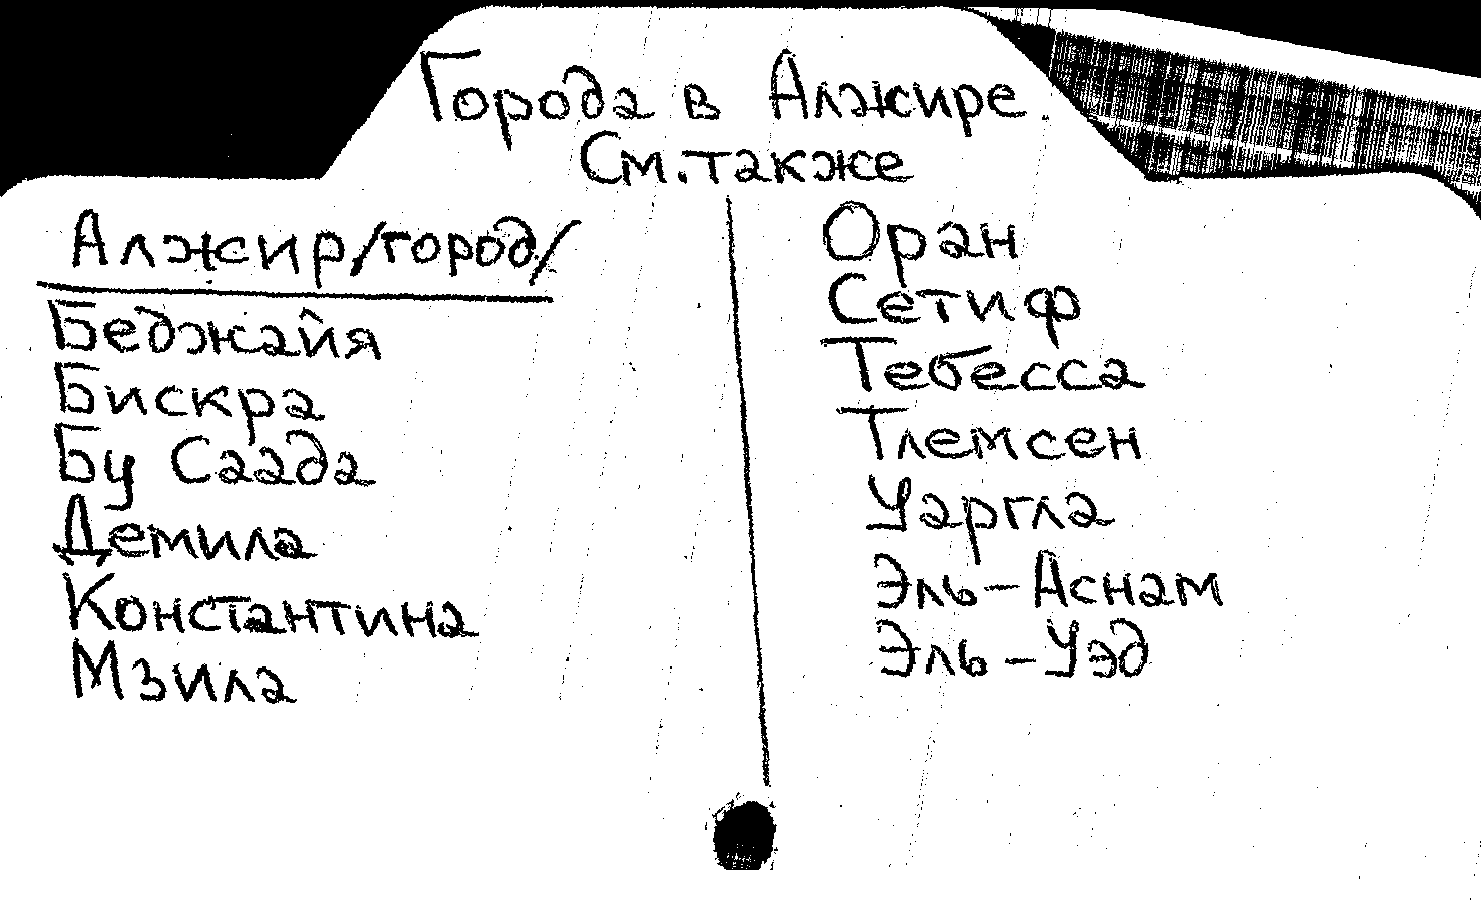 Города в Алжире
См. также
Алжир/город/
Беджайя
Бискра
Бу Саада
Демила
Константина
Мзила
Оран
Сетиф
Тебесса
Тлемсен
Уаргла
Эль-Аснам
Эль-Уэд